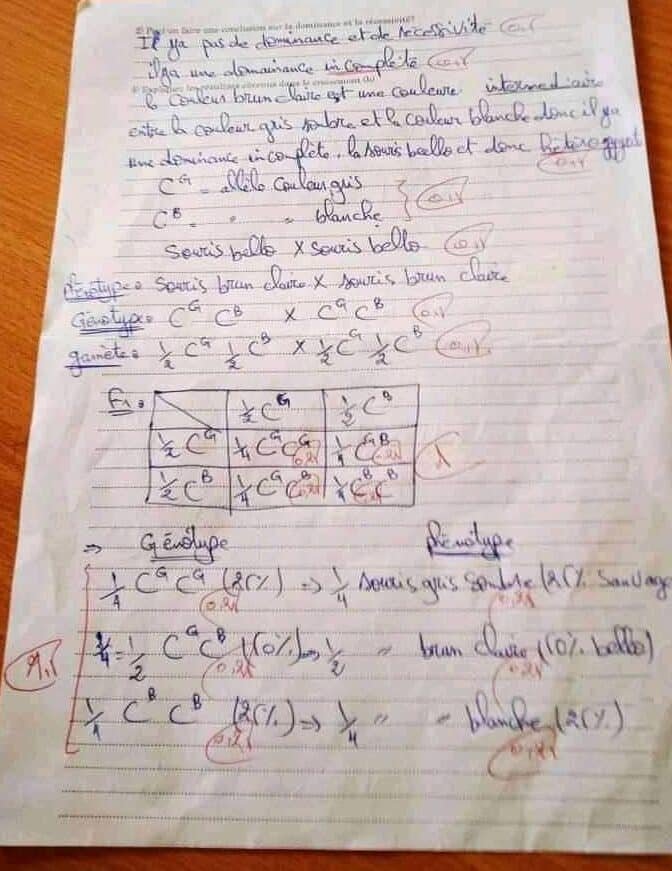 Peut on faire une conclusion sur la dominance et la récessivité?
Il ya pas de dominance et de recessivité 0,5
il ya une domainance incomplète 0,5
Expliquez les résultats obtenus dans le croisement
la couleur brun claire est une couleure intermediaire
entre la couleur gris sombre et la couleur blanche donc il ya
une dominance incomplète. la souris bello et donc 
0,5
C^G = allèle couleur gris
C^B = " " blanche 0,5
Souris bello X souris bello 0,5
Phénotype: Souris brun claire X souris brun claire
Génotype: C^G C^B X C^G C^B 0,5
gamète: 1/2 C^G 1/2 C^B X 1/2 C^G 1/2 C^B 0,5
F1: 1/2 C^G 1/2 C^B
1/2 C^G 1/4 C^G C^G 0,25 1/4 C^G C^B 0,25 1
1/2 C^B 1/4 C^G C^B 0,25 1/4 C^B C^B 0,25
=> Génotype Phénotype
1/4 C^G C^G (25%) => 1/4 souris gris sombre (25% Sauvage
0,25 0,25
2/4 = 1/2 C^G C^B (50%) => 1/2 " brun claire (50% bello)
0,25 0,25
1,5
1/4 C^B C^B (25%) => 1/4 " " blanche (25%)
0,25 0,25